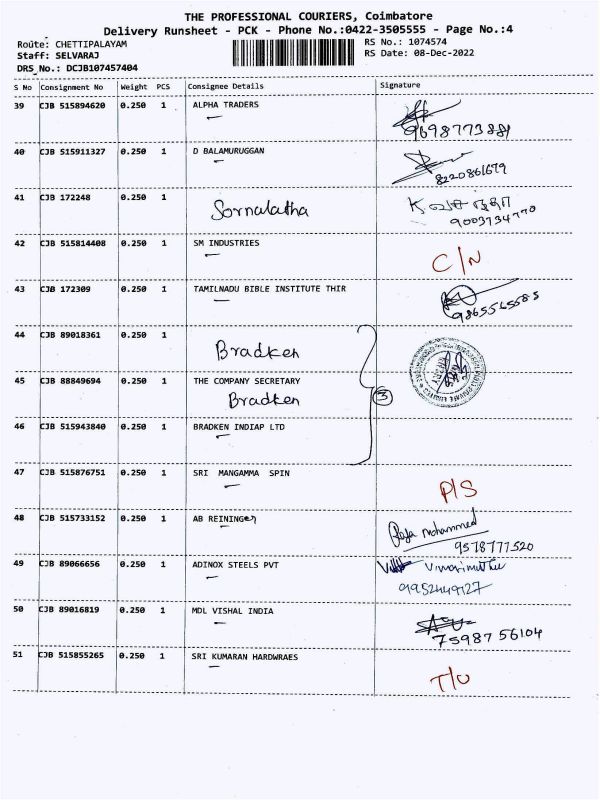 THE PROFESSIONAL COURIERS, Coimbatore
Delivery Runsheet - PCK - Phone No.:0422-3505555 - Page No.:4
Route: CHETTIPALAYAM RS No.: 1074574
Staff: SELVARAJ RS Date: 08-Dec-2022
DRS No.: DCJB107457404
S No Consignment No Weight PCS Consignee Details Signature
39 CJB 515894620 0.250 1 ALPHA TRADERS
9698773881
40 CJB 515911327 0.250 1 D BALAMURUGGAN
8220861679
41 CJB 172248 0.250 1 Sornalatha
9003734770
42 CJB 515814408 0.250 1 SM INDUSTRIES
C/N
43 CJB 172309 0.250 1 TAMILNADU BIBLE INSTITUTE THIR
9865565585
44 CJB 89018361 0.250 1 Bradken
45 CJB 88849694 0.250 1 THE COMPANY SECRETARY
Bradken 3
46 CJB 515943840 0.250 1 BRADKEN INDIAP LTD
47 CJB 515876751 0.250 1 SRI MANGAMMA SPIN
P/S
48 CJB 515733152 0.250 1 AB REININGER
Raja Mohammed
9578777520
49 CJB 89066656 0.250 1 ADINOX STEELS PVT
9952449127
50 CJB 89016819 0.250 1 MDL VISHAL INDIA
7598756104
51 CJB 515855265 0.250 1 SRI KUMARAN HARDWRAES
T/O